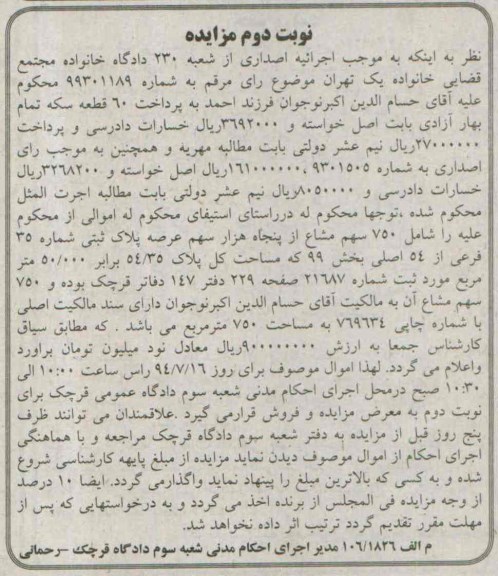 نوبت دوم مزایده
نظر به اینکه به موجب اجرائیه اصداری از شعبه ۲۳۰ دادگاه خانواده مجتمع
قضایی خانواده یک تهران موضوع رای مرقم به شماره ۹۹۳۰۱۱۸۹ محکوم
علیه آقای حسام الدین اکبرنوجوان فرزند احمد به پرداخت ۶۰ قطعه سکه تمام
بهار آزادی بابت اصل خواسته و ۳۶۹۲۰۰۰ریال خسارات دادرسی و پرداخت
۲۷۰۰۰۰۰۰ریال نیم عشر دولتی بابت مطالبه مهریه و همچنین به موجب رای
اصداری به شماره ۹۳۰۱۵۰۵ ،۱۶۱۰۰۰۰۰۰ریال اصل خواسته و ۳۲۶۸۲۰۰ریال
خسارات دادرسی و ۸۰۵۰۰۰۰ریال نیم عشر دولتی بابت مطالبه اجرت المثل
محکوم شده ،توجها محکوم له درراستای استیفای محکوم له اموالی از محکوم
علیه را شامل ۷۵۰ سهم مشاع از پنجاه هزار سهم عرصه پلاک ثبتی شماره ۳۵
فرعی از ۵۴ اصلی بخش ۹۹ که مساحت کل پلاک ۵۴/۳۵ برابر ۵۰/۰۰۰ متر
مربع مورد ثبت شماره ۲۱۶۸۷ صفحه ۲۲۹ دفتر ۱۴۷ دفاتر قرچک بوده و ۷۵۰
سهم مشاع آن به مالکیت آقای حسام الدین اکبرنوجوان دارای سند مالکیت اصلی
با شماره چاپی ۷۶۹۶۳۴ به مساحت ۷۵۰ مترمربع می باشد . که مطابق سیاق
کارشناس جمعا به ارزش ۹۰۰۰۰۰۰۰۰ریال معادل نود میلیون تومان براورد
واعلام می گردد. لهذا اموال موصوف برای روز ۹۴/۷/۱۶ راس ساعت ۱۰:۰۰ الی
۱۰:۳۰ صبح درمحل اجرای احکام مدنی شعبه سوم دادگاه عمومی قرچک برای
نوبت دوم به معرض مزایده و فروش قرارمی گیرد .علاقمندان می توانند ظرف
پنج روز قبل از مزایده به دفتر شعبه سوم دادگاه قرچک مراجعه و با هماهنگی
اجرای احکام از اموال موصوف دیدن نماید مزایده از مبلغ پایهه کارشناسی شروع
شده و به کسی که بالاترین مبلغ را پینهاد نماید واگذارمی گردد. ایضا ۱۰ درصد
از وجه مزایده فی المجلس از برنده اخذ می گردد و به درخواستهایی که پس از
مهلت مقرر تقدیم گردد ترتیب اثر داده نخواهد شد.
م الف ۱۰۶/۱۸۲۶ مدیر اجرای احکام مدنی شعبه سوم دادگاه قرچک –رحمانی